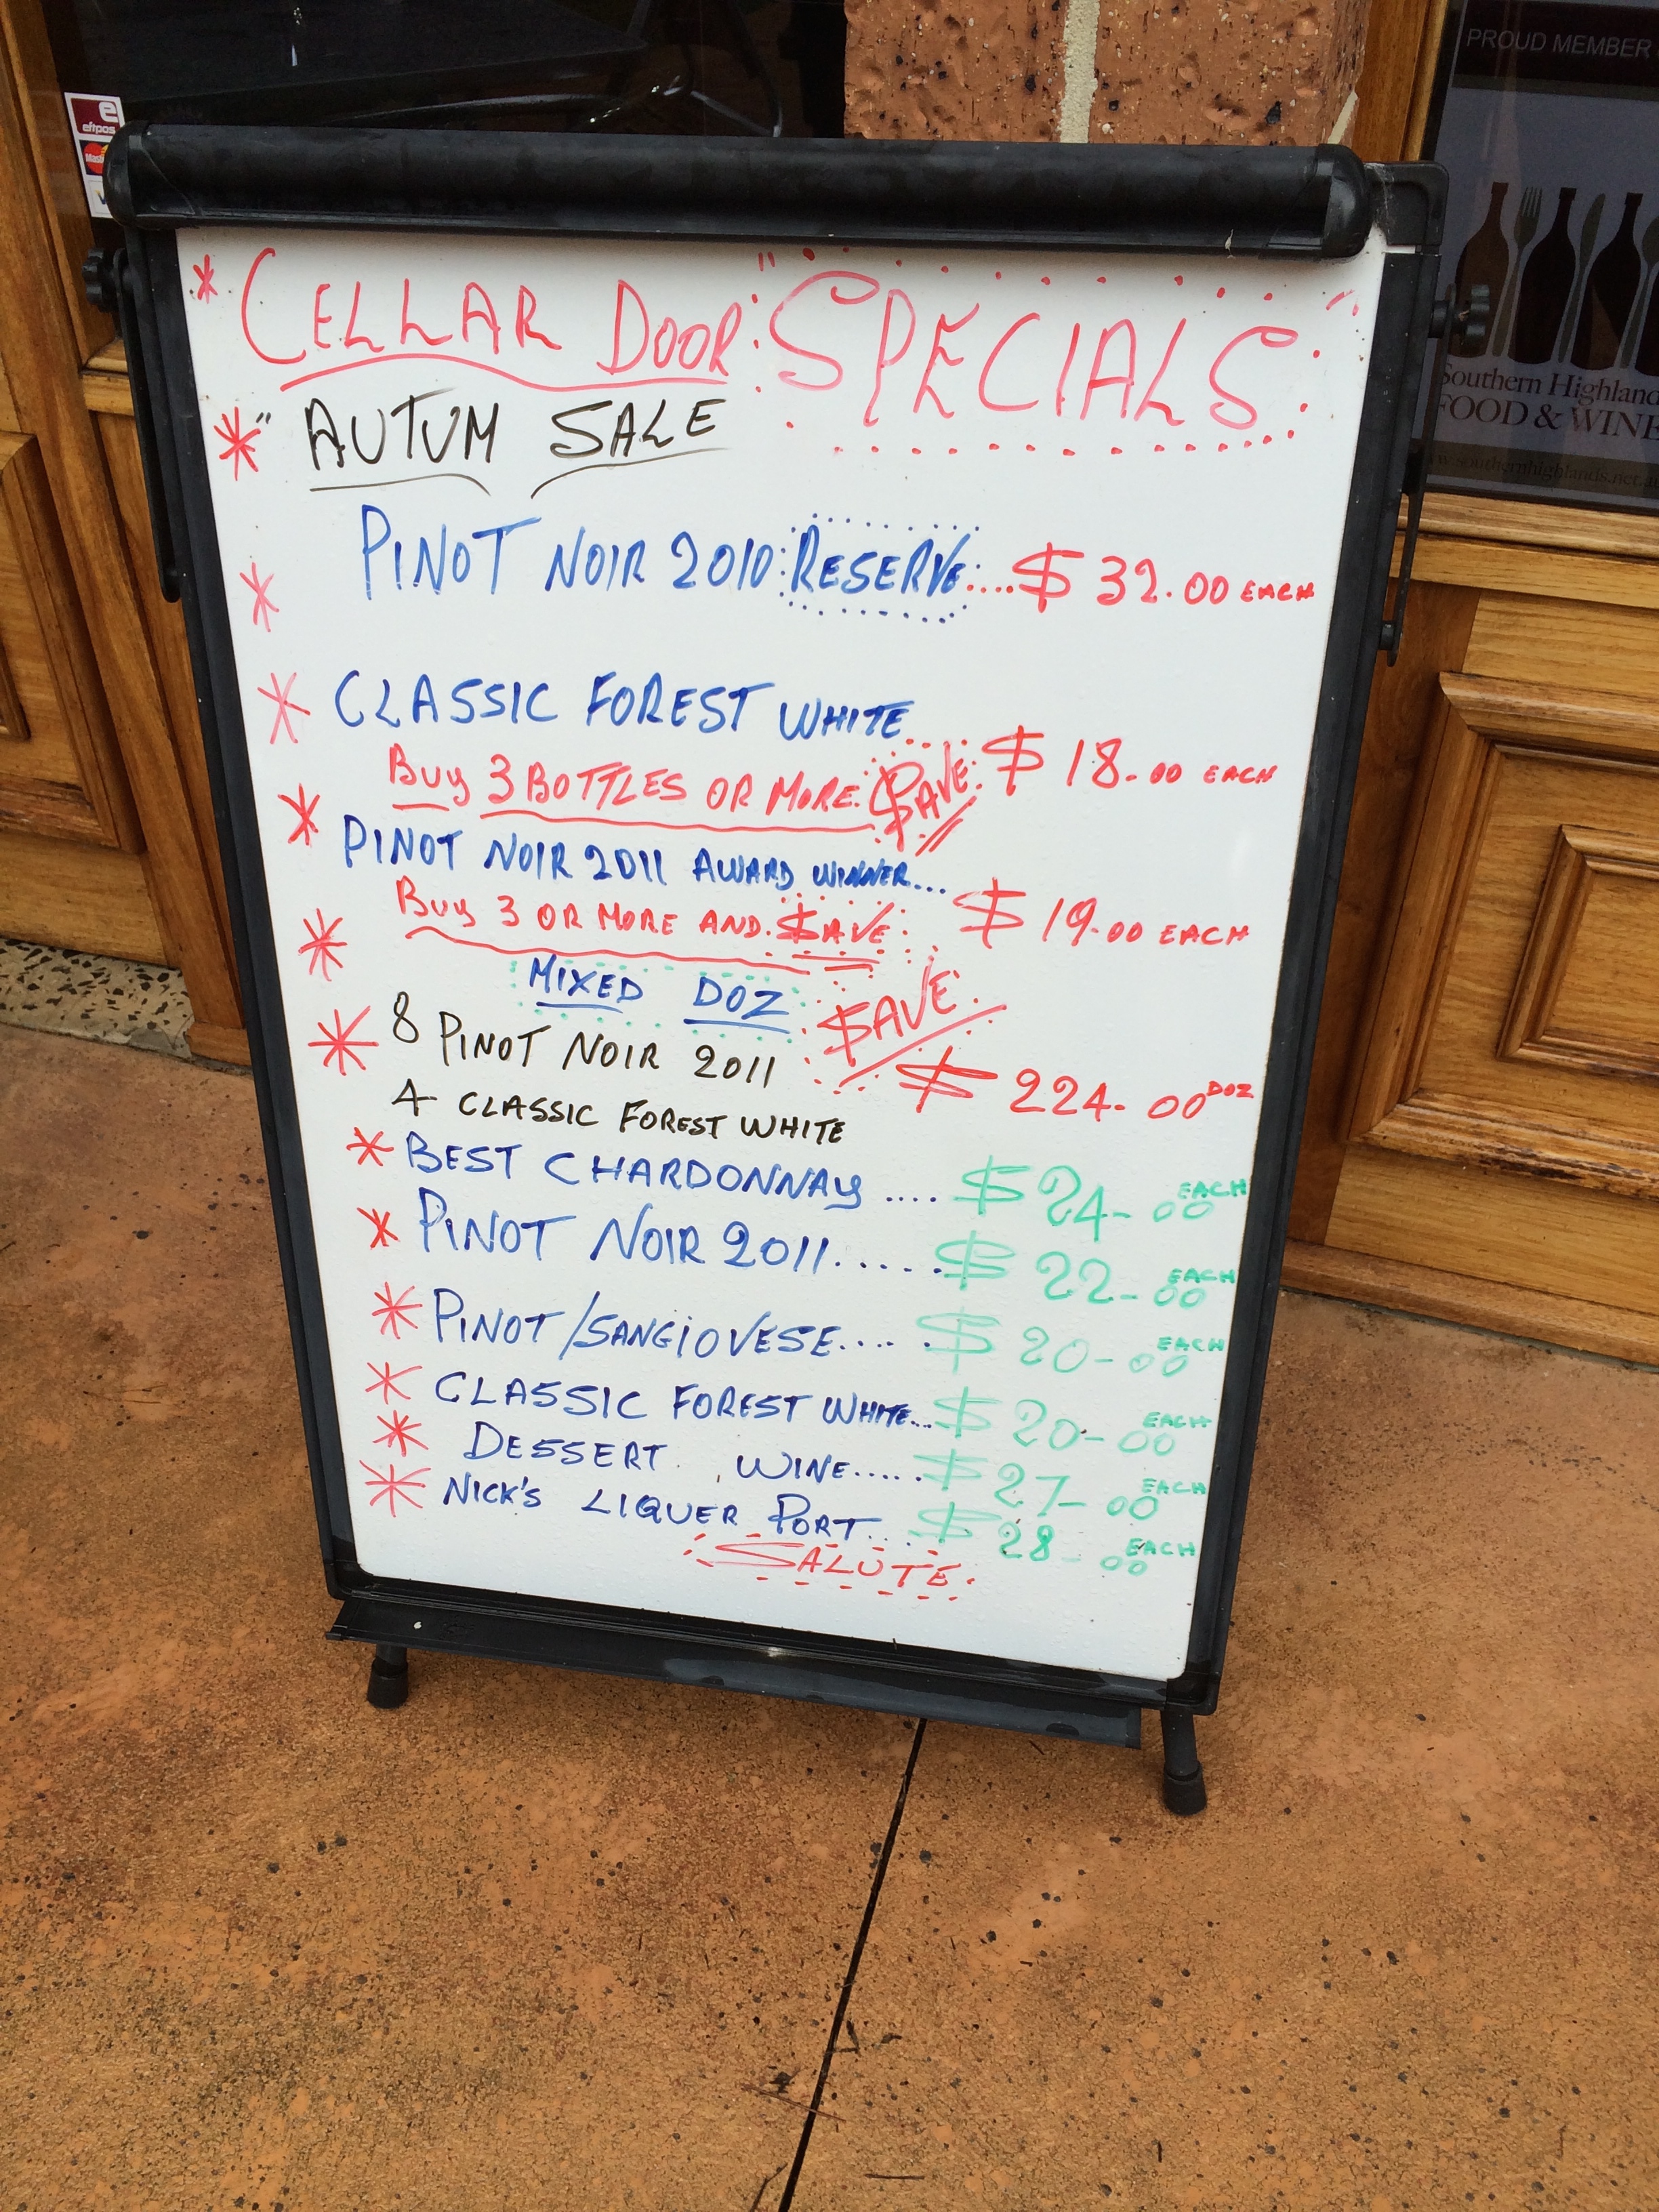 e
eftpos
PROUD MEMBER
Southern Highland
FOOD & WINE
www.southernhighlands.net.a
* CELLAR DOOR "SPECIALS"
* "AUTUM SALE
* PINOT NOIR 2010 RESERVE.... $ 32.00 EACH
* CLASSIC FOREST WHITE
BUY 3 BOTTLES OR MORE. $AVE $ 18.00 EACH
* PINOT NOIR 2011 AWARD WINNER...
BUY 3 OR MORE AND $AVE $ 19.00 EACH
* MIXED DOZ $AVE
* 8 PINOT NOIR 2011 $ 224.00 DOZ
4 CLASSIC FOREST WHITE
* BEST CHARDONNAY .... $ 24-00 EACH
* PINOT NOIR 2011...... $ 22-00 EACH
* PINOT/SANGIOVESE..... $ 20-00 EACH
* CLASSIC FOREST WHITE... $ 20-00 EACH
* DESSERT WINE..... $ 27-00 EACH
* NICK'S LIQUER PORT... $ 28-00 EACH
SALUTE